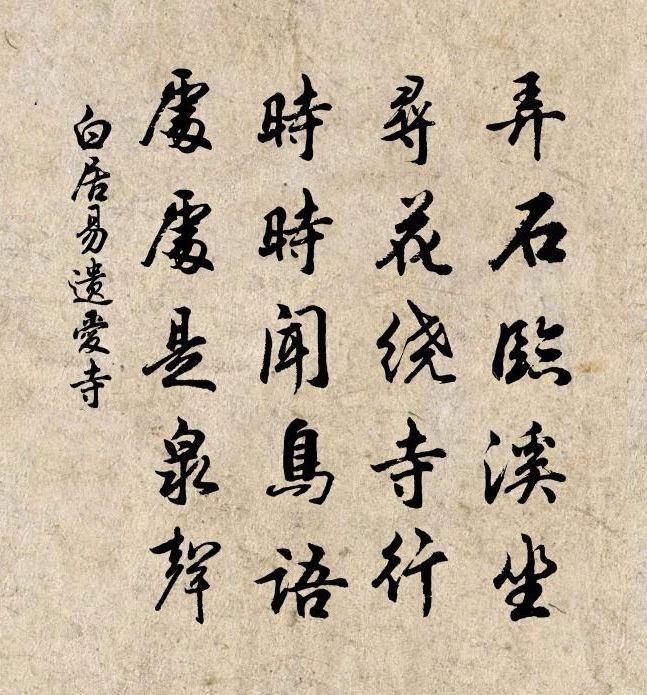 弄石臨溪坐
尋花绕寺行
時時闻鳥語
處處是泉聲
白居易遺愛寺